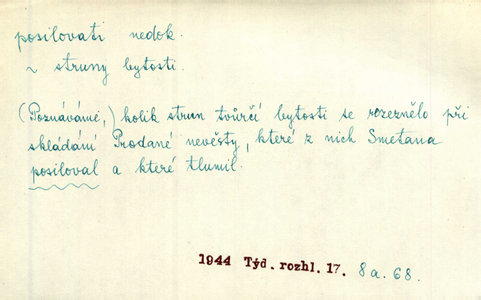 posilovati nedok.
~ struny bytosti.
(Poznáváme,) kolik strun tvůrčí bytosti se rozeznělo při
skládání Prodané nevěsty, které z nich Smetana
posiloval a které tlumil.
1944 Týd. rozhl. 17. 8 a. 68.